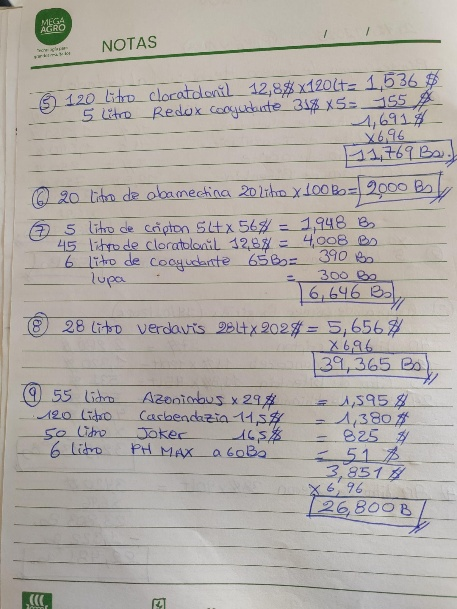 MEGA
AGRO
NOTAS / /
⑤ 120 Litro Cloratolonil 12,8$ x120Lt= 1,536 $
5 Litro Redux coayudante 31$ x5= 155 $
1,691$
x6,96
11,769 Bo.
⑥ 20 Litro de abamectina 20Litro x100Bo= 2,000 Bo
⑦ 5 Litro de cripton 5Lt x 56$ = 1,948 Bo
45 Litro de cloratolonil 12,8$ = 4,008 Bo
6 Litro de coayudante 65Bo= 390 Bo
lupa = 300 Bo
6,646 Bo
⑧ 28 Litro verdavis 28Lt x202$ = 5,656$
x6,96
39,365 Bo
⑨ 55 Litro Azonimbus x 29$ = 1,595$
120 Litro Carbendazia 11,5$ = 1,380$
50 Litro Joker 16,5$ = 825 $
6 Litro PH MAX a 60Bo = 51 $
3,851$
x 6,96
26,800B